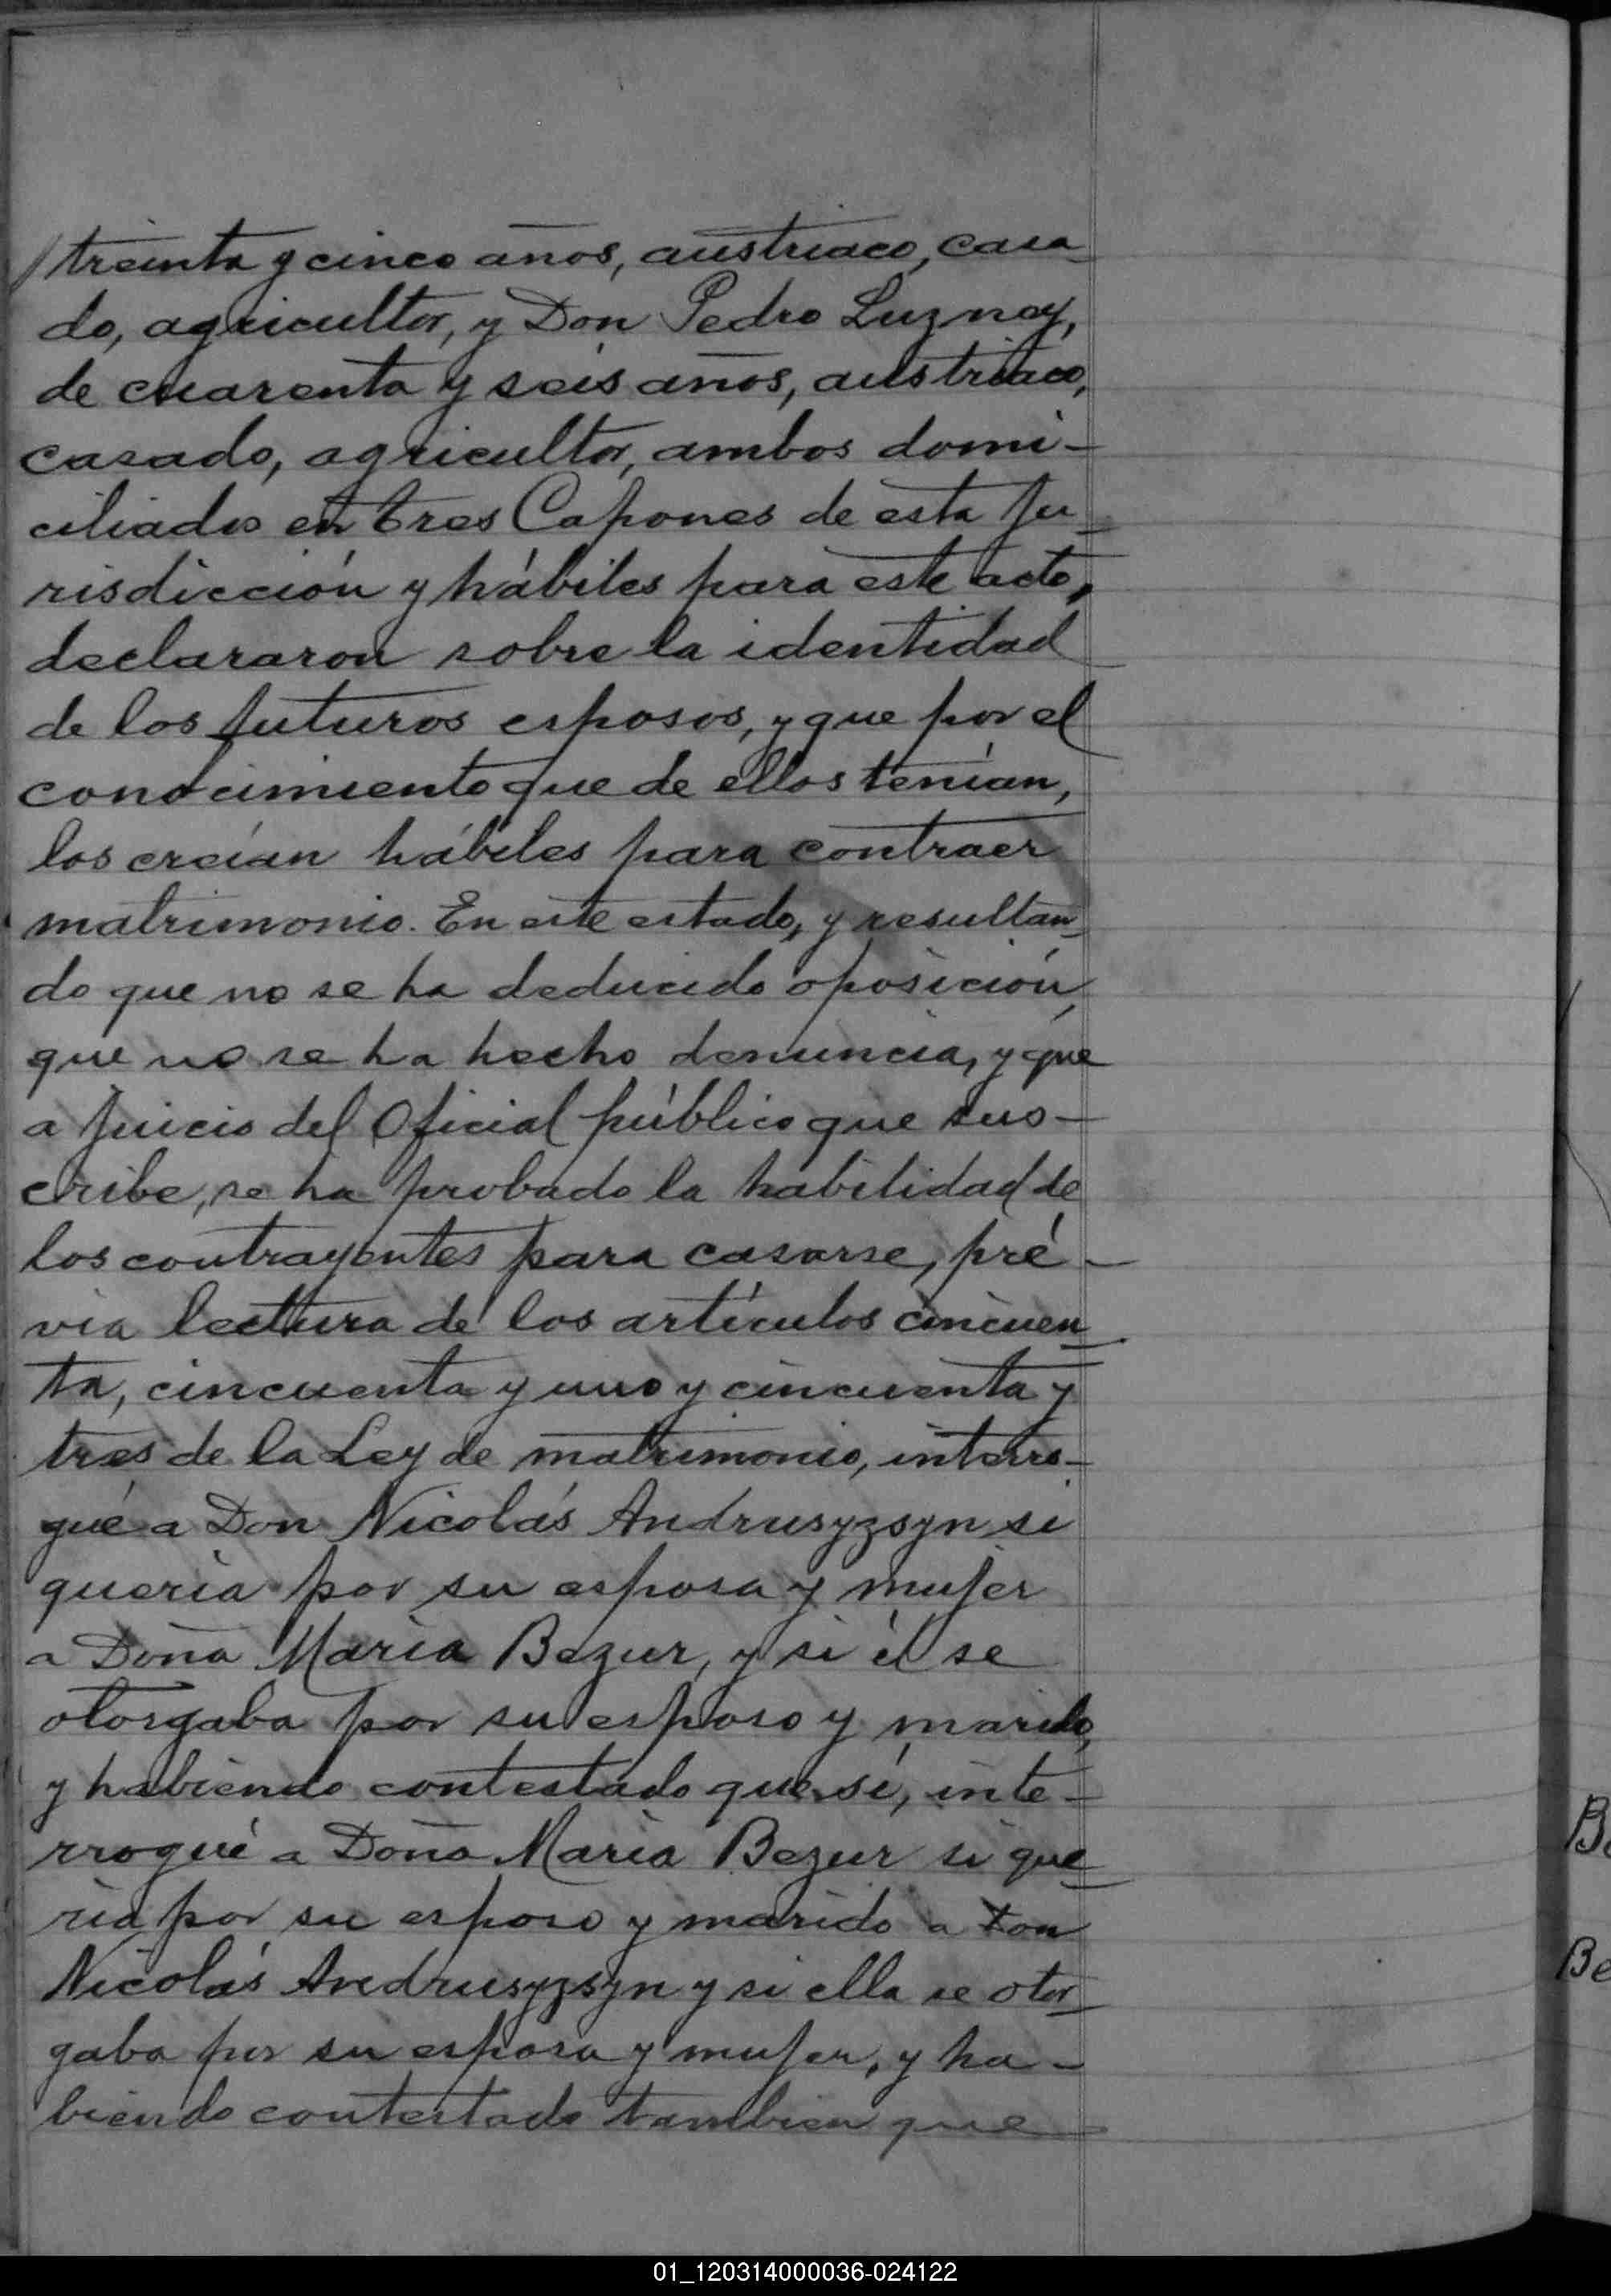 treinta y cinco años, austriaco, casa-
do, agricultor, y Don Pedro Luznay,
de cuarenta y seis años, austriaco,
casado, agricultor, ambos domi-
ciliados en tres Capones de esta Ju-
risdicción y hábiles para este acto,
declararon sobre la identidad
de los futuros esposos, y que por el
conocimiento que de ellos tenían,
los creían hábiles para contraer
matrimonio. En este estado, y resultan-
do que no se ha deducido oposición,
que no se ha hecho denuncia, y que
a juicio del Oficial público que sus-
cribe, se ha probado la habilidad de
los contrayentes para casarse, pré-
via lectura de los artículos cincuen-
ta, cincuenta y uno y cincuenta y
tres de la Ley de matrimonio, interro-
gué a Don Nicolás Andrusyzsyn si
quería por su esposa y mujer
a Doña María Bezur, y si él se
otorgaba por su esposo y marido,
y habiendo contestado que sí, inte-
rrogué a Doña María Bezur si que-
ría por su esposo y marido a Don
Nicolás Andrusyzsyn y si ella se otor-
gaba por su esposa y mujer, y ha-
biendo contestado tambien que
Be
01_120314000036-024122